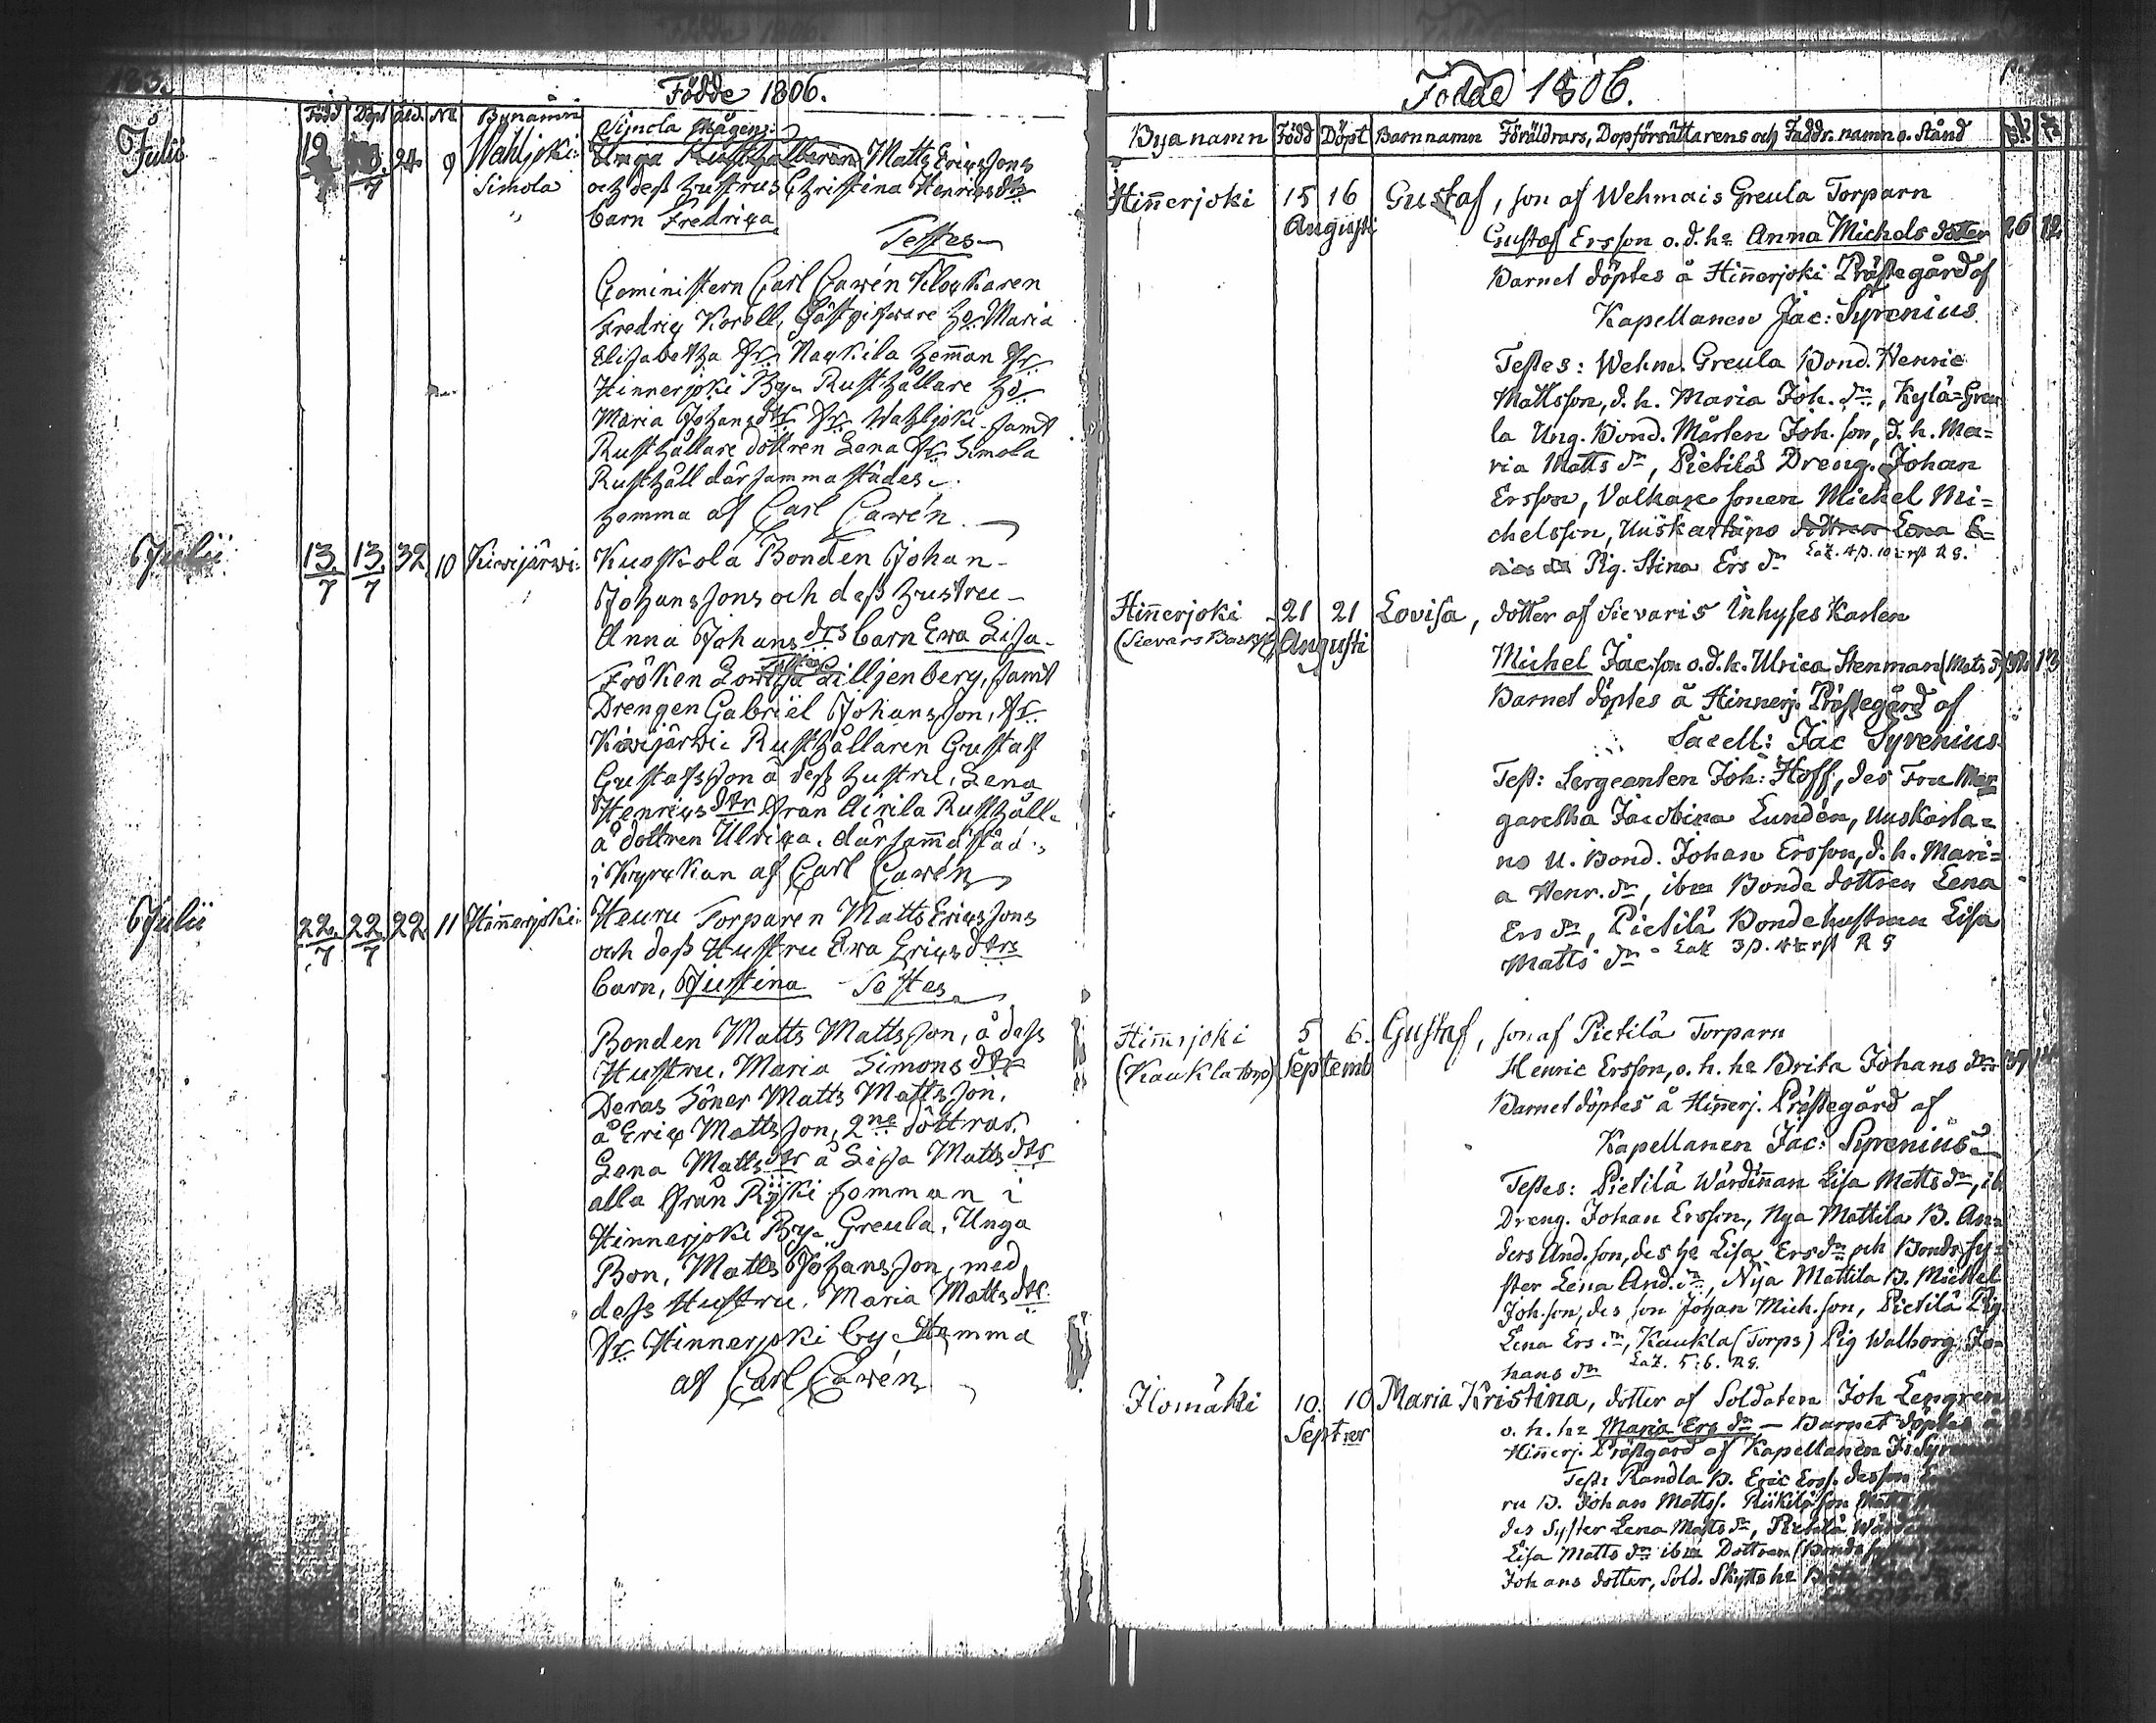 Födde 1806.
Född Döpt Åld. No Bynamn
Julii
24. 9 Wahljoki Simola
Unga Rusthållaren Matts Ericssons
och dess hustrus Christina Henricsdtr
barn Fredrica
Testes
Cominístern Carl Cawén Klockaren
Fredric Korell, Gästgifvare ho Maria
Elisabetha fr. Kaukila hemman fr.
Hinnerjoki By. Rusthållare ho
Maria Johansdtr fr. Wahljoki. samt
Rusthållare dottren Lena fr. Simola
Rusthåll därsammastädes.
hemma af Carl Cawén
Julii 13/7 13/7 32. 10 Kiwijärwi
Kuoskola Bonden Johan
Johanssons och dess hustru
Anna Johans dtrs barn Ewa Lisa
Testes
Fröken Lovisa Lilljenberg, samt
Drengen Gabriel Johansson, fr.
Kiwijärwi Rusthållaren Gustaf
Gustafsson å dess hustru, Lena
Henricsdtr från Airila Rusthåll
å dottren Ulrica. därsammastäd
i Kyrckan af Carl Cawén
Julii 22/7 22/7 22 11 Hinnerjoki
Heuru Torparen Matts Ericssons
och dess Hustru Ewa Ericsdtrs
barn, Justina Testes
Bonden Matts Mattsson, å dess
Hustru. Maria Simonsdtr
Deras Söner Matts Mattsson.
å Eric Mattsson, 2ne döttrar.
Lena Mattsdtr å Lisa Mattsdtr
alla från Ryski hemman i
Hinnerjoki By. Greula. Unga
Bon. Matts Johansson, med
dess Hustru. Maria Mattsdtr
fr. Hinnerjoki by. Hemma
af Carl Cawén
Födde 1806.
Byanamn Född Döpt Barn namn Föräldrars, Dopförrättarens och Faddr. namn o. stånd
Hin̄erjoki 15 16 Gustaf, son af Wehmais Greula Torparn
Augusti
Gustaf Ersson o. d. h. Anna Michels dotter 26 12
Barnet döptes å Hin̄erjoki Prästegård af
Kapellanen Jac: Syrenius
Testes: Wehm. Greula Bond. Henric
Mattsson, d. h. Maria Joh. dr, Kylä=Greu
la Ung. Bond. Mårten Joh. son, d. h. Ma=
ria Matts dr, Pietilä Dreng. Johan
Ersson, Valkaxe sonen Michel Mi=
chelsson, Uuskartano
Pig. Stina Ers dr
Hin̄erjoki 21 21 Lovisa, dotter af Sievaris Inhyses Karlen
Augusti
Michel Jac. son o. d. h. Ulrica Stenman (Mats dr) 13
Barnet döptes å Hinnerj. Prästegård af
Sacell: Jac Syrenius
Test: Sergeanten Joh: Hoff, des Fru Mar
garetha Jacobina Lundén, Uuskarta=
no U. Bond. Johan Ersson, d. h. Mari=
a Henr. dr, ibm Bonde dottren Lena
Ers dr, Pietilä Bondehustrun Lisa
Matts dr
Hin̄erjoki 5 6. Gustaf, son af Pietilä Torparn
(Kaukla torp) Septemb
Henric Ersson, o. h. h. Brita Johans dr
Barnet döptes å Hin̄erj. Prästegård af
Kapellanen Jac: Syrenius
Testes: Pietilä Wärdin̄an Lisa Matts dr, ib
Dreng. Johan Ersson, Nya Mattila B. An=
ders And. son, des h. Lisa Ers dr och Bonds sy=
ster Lena And. dr, Nya Mattila B. Michel
Joh. son, des son Johan Mich. son, Pietilä Pig.
Lena Ers dr, Kaukla (Torps) Pig Walborg Jo=
hans dr
Ilomäki 10. 10 Maria Kristina, dotter af Soldaten Joh Lengren
Septr
o. h. h. Maria Ers dr — Barnet döptes å
Hin̄erj. Prästgård af Kapellanen J. Syrenius
Test: Randla B. Eric Erss. desson
ru B. Johan Matts. Riikilä son Matts
des Syster Lena Matts dr, Pietilä
Lisa Matts dr ibm Dottren
Johans dotter, Sold. Skytts h.